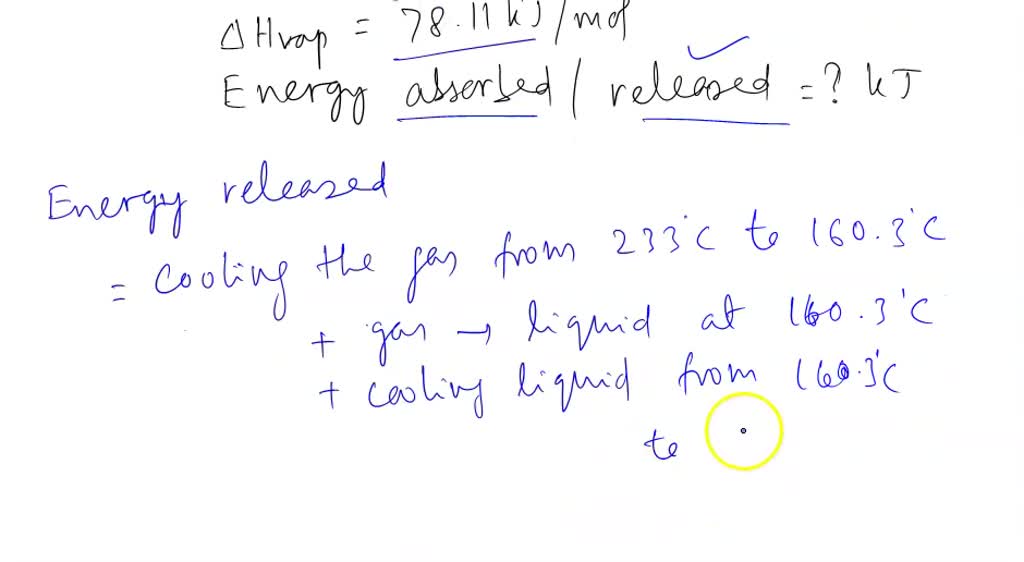 ΔHvap = 78.11 kJ/mol
Energy absorbed / released = ? kJ
Energy released
= cooling the gas from 233°C to 160.3°C
+ gas → liquid at 160.3°C
+ cooling liquid from 160.3°C
to